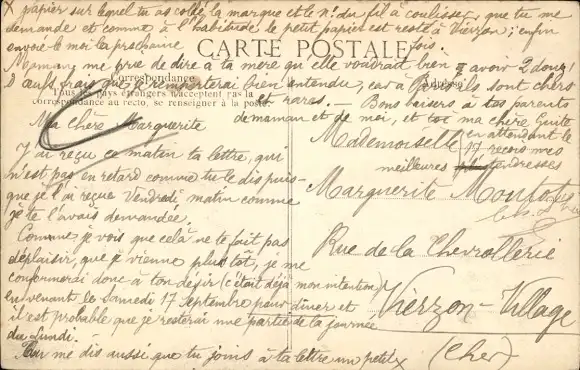 x papier sur lequel tu as collé la marque et le no. du fil à coulisser, que tu me
demande et comme à l'habitude le petit papier est resté à Vierzon; enfin
envoie le moi la prochaine fois.
CARTE POSTALE
Maman me prie de dire à ta mère qu'elle voudrait bien avoir 2 douz.
d'œufs frais que je remporterai bien entendu, car à ils sont chers
et rares. Bons baisers à tes parents
de maman et de moi, et toi ma chère Guite
en attendant le
17 recois mes
meilleures tendresses
Correspondance
Tous les pays étrangers n'acceptent pas la
correspondance au recto, se renseigner à la poste.
Ma chère Marguerite
J'ai reçu ce matin ta lettre, qui
n'est pas en retard comme tu le dis puis-
que je l'ai reçue Vendredi matin comme
je te l'avais demandée.
Comme je vois que celà ne te fait pas
déplaisir, que je vienne plus tot, je me
conformerai donc à ton désir (c'était déjà mon intention)
en venant le samedi 17 Septembre pour diner et
il est probable que je resterai une partie de la journée
du Lundi.
me dis aussi que tu joins à ta lettre un petit x
Mademoiselle
Marguerite
Rue de la Chevrollerie
Vierzon-Village
(Cher)